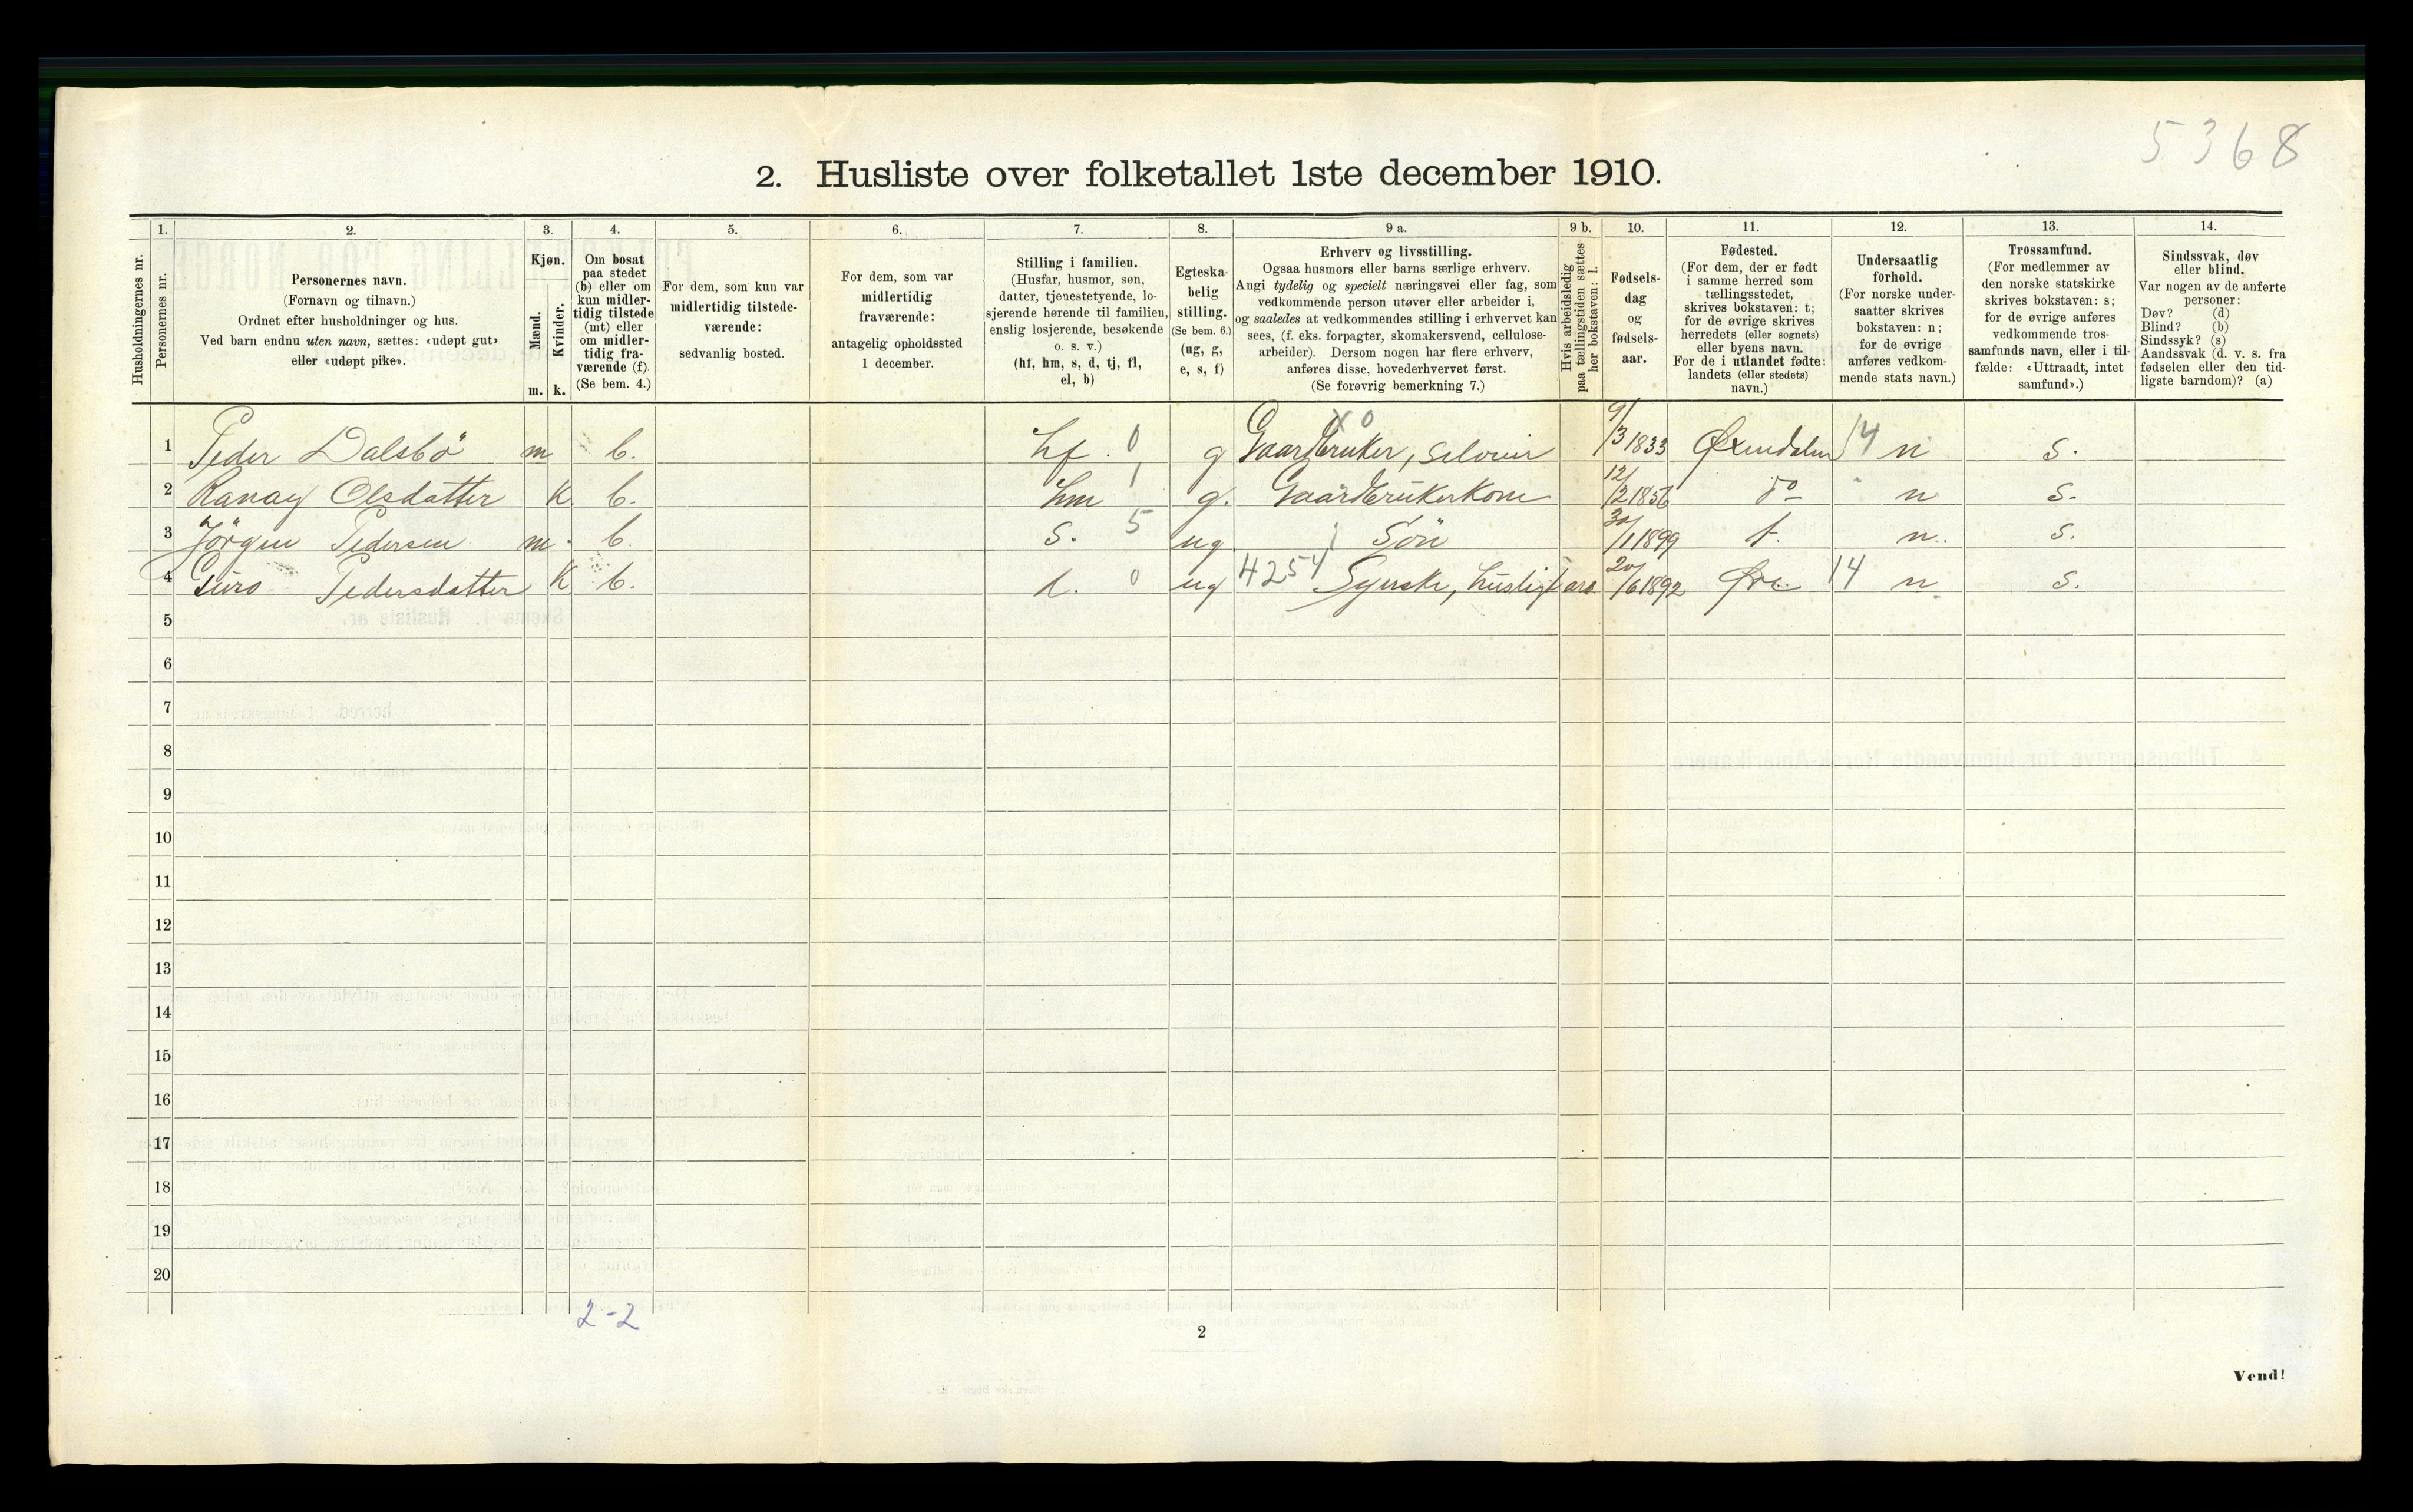 5368
2. Husliste over folketallet 1ste december 1910.
Husholdningernes nr.
1.
Personernes nr.
2.
Personernes navn.
(Fornavn og tilnavn.)
Ordnet efter husholdninger og hus.
Ved barn endnu uten navn, sættes: «udøpt gut»
eller «udøpt pike».
3.
Kjøn.
Mænd.
Kvinder.
m. k.
4.
Om bosat
paa stedet
(b) eller om
kun midler-
tidig tilstede
(mt) eller
om midler-
tidig fra-
værende (f).
(Se bem. 4.)
5.
For dem, som kun var
midlertidig tilstede-
værende:
sedvanlig bosted.
6.
For dem, som var
midlertidig
fraværende:
antagelig opholdssted
1 december.
7.
Stilling i familien.
(Husfar, husmor, søn,
datter, tjenestetyende, lo-
sjerende hørende til familien,
enslig losjerende, besøkende
o. s. v.)
(hf, hm, s, d, tj, fl,
el, b)
8.
Egteska-
belig
stilling.
(Se bem. 6.)
(ug, g,
e, s, f)
9 a.
Erhverv og livsstilling.
Ogsaa husmors eller barns særlige erhverv.
Angi tydelig og specielt næringsvei eller fag, som
vedkommende person utøver eller arbeider i,
og saaledes at vedkommendes stilling i erhvervet kan
sees, (f. eks. forpagter, skomakersvend, cellulose-
arbeider). Dersom nogen har flere erhverv,
anføres disse, hovederhvervet først.
(Se forøvrig bemerkning 7.)
9 b.
Hvis arbeidsledig
paa tællingstiden sættes
her bokstaven: l.
10.
Fødsels-
dag
og
fødsels-
aar.
11.
Fødested.
(For dem, der er født
i samme herred som
tællingsstedet,
skrives bokstaven: t;
for de øvrige skrives
herredets (eller sognets)
eller byens navn.
For de i utlandet fødte:
landets (eller stedets)
navn.)
12.
Undersaatlig
forhold.
(For norske under-
saatter skrives
bokstaven: n;
for de øvrige
anføres vedkom-
mende stats navn.)
13.
Trossamfund.
(For medlemmer av
den norske statskirke
skrives bokstaven: s;
for de øvrige anføres
vedkommende tros-
samfunds navn, eller i til-
fælde: «Uttraadt, intet
samfund».)
14.
Sindssvak, døv
eller blind.
Var nogen av de anførte
personer:
Døv? (d)
Blind? (b)
Sindssyk? (s)
Aandssvak (d. v. s. fra
fødselen eller den tid-
ligste barndom)? (a)
1 Peder Dalsbö m b. hf. 0 g Gaardbruker, Seleier X0 9/3 1833 Øxendalen 14 n s.
2 Ranay Olsdatter K b. hm 1 g. Gaardbrukerkone 12/2 1856 do n s.
3 Jörgen Pedersen m. b. s. 5 ug Sön 30/1 1899 t. n. s.
4 Guro Pedersdatter K b. d. 0 ug 4254 Syerske, husligt arb 20/6 1892 Øre 14 n. s.
5
6
7
8
9
10
11
12
13
14
15
16
17
18
19
20
2-2
2
Vend!